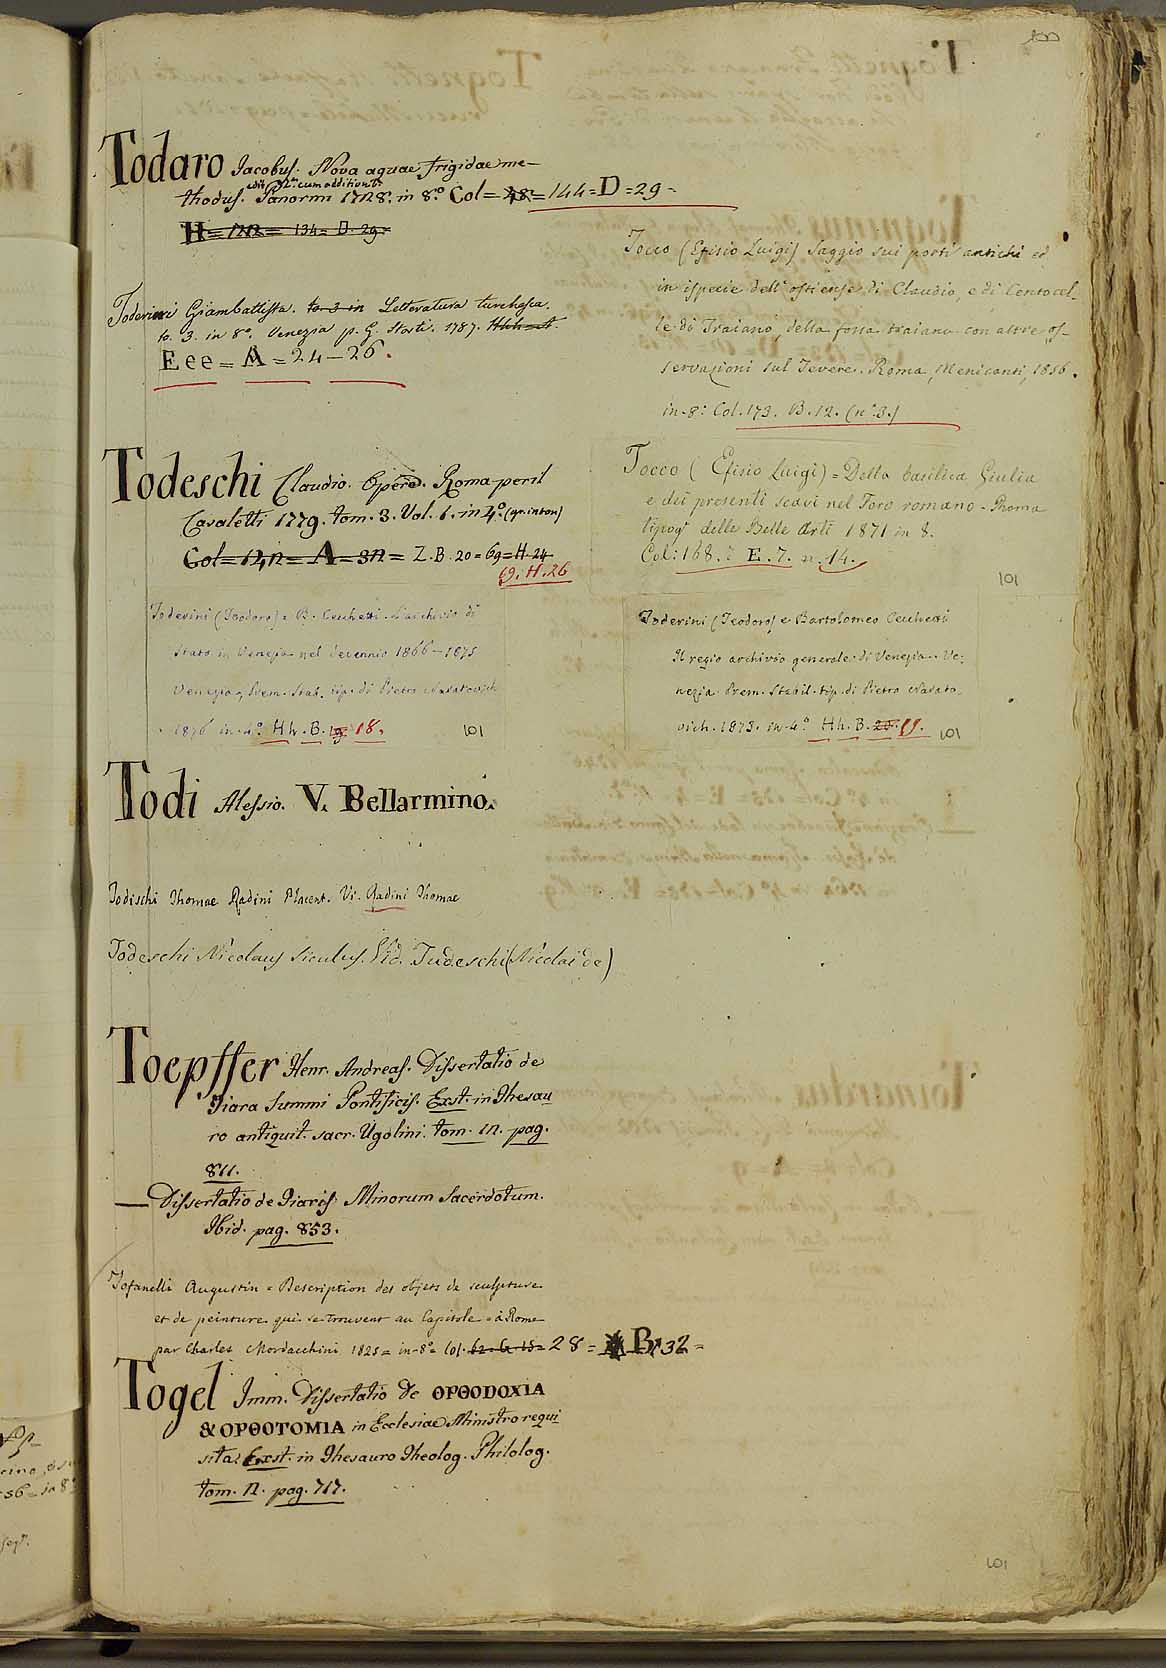 Todaro Jacobus. Nova aquae frigidae me-
thodus. Panormi 1728. in 8.º Col= 144=D=29=
edit. 2.ª cum additionib.
H=1212= 134= D. 29=
Toderini Giambattista. to. 3 in Letteratura turchesca.
to. 3. in 8º. Venezia p. G. Storti. 1787. Hhh=A
Eee = A = 24-26.
Todeschi Claudio. Opere. Roma per il
Casaletti 1779. tom. 3. Vol. 1. in 4º. (gr. in ton)
Col= 12,12= A= 312= Z. B. 20=69=H. 24
69. H. 26
Toderini (Teodoro) = B. Cecchetti. L'archivio di
Stato in Venezia nel decennio 1866-1875
Venezia, Prem. Stab. tip. di Pietro Naratovich
1876 in-4º Hh. B. 19. 18.
101
Todi Alessio. V. Bellarmino.
Todischi Thomae Radini Placent. Vi. Radini Thomae
Todeschi Nicolaus siculus. Vid. Tudeschi (Nicolai de)
Toepffer Henr. Andreas. Dissertatio de
Tiara Summi Pontificis. Exst. in Thesau
ro antiquit. sacr. Ugolini. tom. 12. pag.
811.
— Dissertatio de Tiaris Minorum Sacerdotum.
Ibid. pag. 853.
Tofanelli Augustin = Description des objets de sculpture
et de peinture qui se trouvent au Capitole = à Rome
par Charles Mordacchini 1825 = in-8º= Col. 62. G. 15= 28 = B. 32=
Togel Imm. Dissertatio de ΟΡΘΟDΟΧΙΑ
& ΟΡΘΟΤΟΜΙΑ in Ecclesiae Ministro requi
sita. Exst. in Thesauro Theolog. Philolog.
tom. 2. pag. 717.
Tocco (Efisio Luigi) Saggio sui porti antichi ed
in ispecie dell'ostiense di Claudio, e di Centocel-
le di Traiano, della fossa traiana con altre os-
servazioni sul Tevere. Roma, Menicanti, 1856.
in-8: Col. 173. B. 12. (nº 3.)
Tocco (Efisio Luigi) = Della basilica Giulia
e dei presenti scavi nel Foro romano - Roma
tipogr. delle Belle Arti 1871 in 8.
Col: 168. E. 7. n. 14.
101
Toderini (Teodoro) e Bartolomeo Cecchetti
Il regio archivio generale di Venezia. Ve-
nezia. Prem. Stabil. tip. di Pietro Narato-
vich. 1873. in-4º Hh. B. 20. 19.
101
101